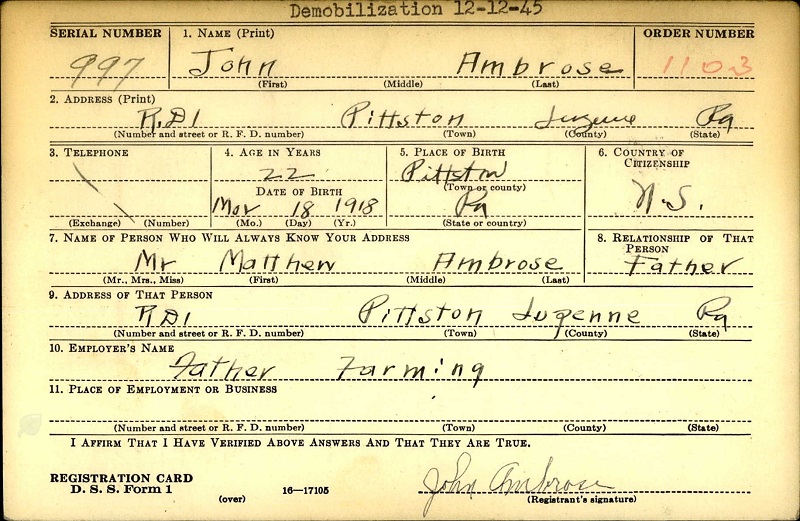 Demobilization 12-12-45
SERIAL NUMBER 1. NAME (Print) ORDER NUMBER
997 John Ambrose 1103
(First) (Middle) (Last)
2. ADDRESS (Print)
R.D1 Pittston Luzerne Pa
(Number and street or R. F. D. number) (Town) (County) (State)
3. TELEPHONE 4. AGE IN YEARS 5. PLACE OF BIRTH 6. COUNTRY OF CITIZENSHIP
22 Pittston
(Town or county)
DATE OF BIRTH U.S.
Mar 18 1918 Pa
(Exchange) (Number) (Mo.) (Day) (Yr.) (State or country)
7. NAME OF PERSON WHO WILL ALWAYS KNOW YOUR ADDRESS 8. RELATIONSHIP OF THAT PERSON
Mr Matthew Ambrose Father
(Mr., Mrs., Miss) (First) (Middle) (Last)
9. ADDRESS OF THAT PERSON
R.D1 Pittston Luzerne Pa
(Number and street or R. F. D. number) (Town) (County) (State)
10. EMPLOYER'S NAME
Father Farming
11. PLACE OF EMPLOYMENT OR BUSINESS
(Number and street or R. F. D. number) (Town) (County) (State)
I AFFIRM THAT I HAVE VERIFIED ABOVE ANSWERS AND THAT THEY ARE TRUE.
REGISTRATION CARD
D. S. S. Form 1 16—17105 John Ambrose
(over) (Registrant's signature)